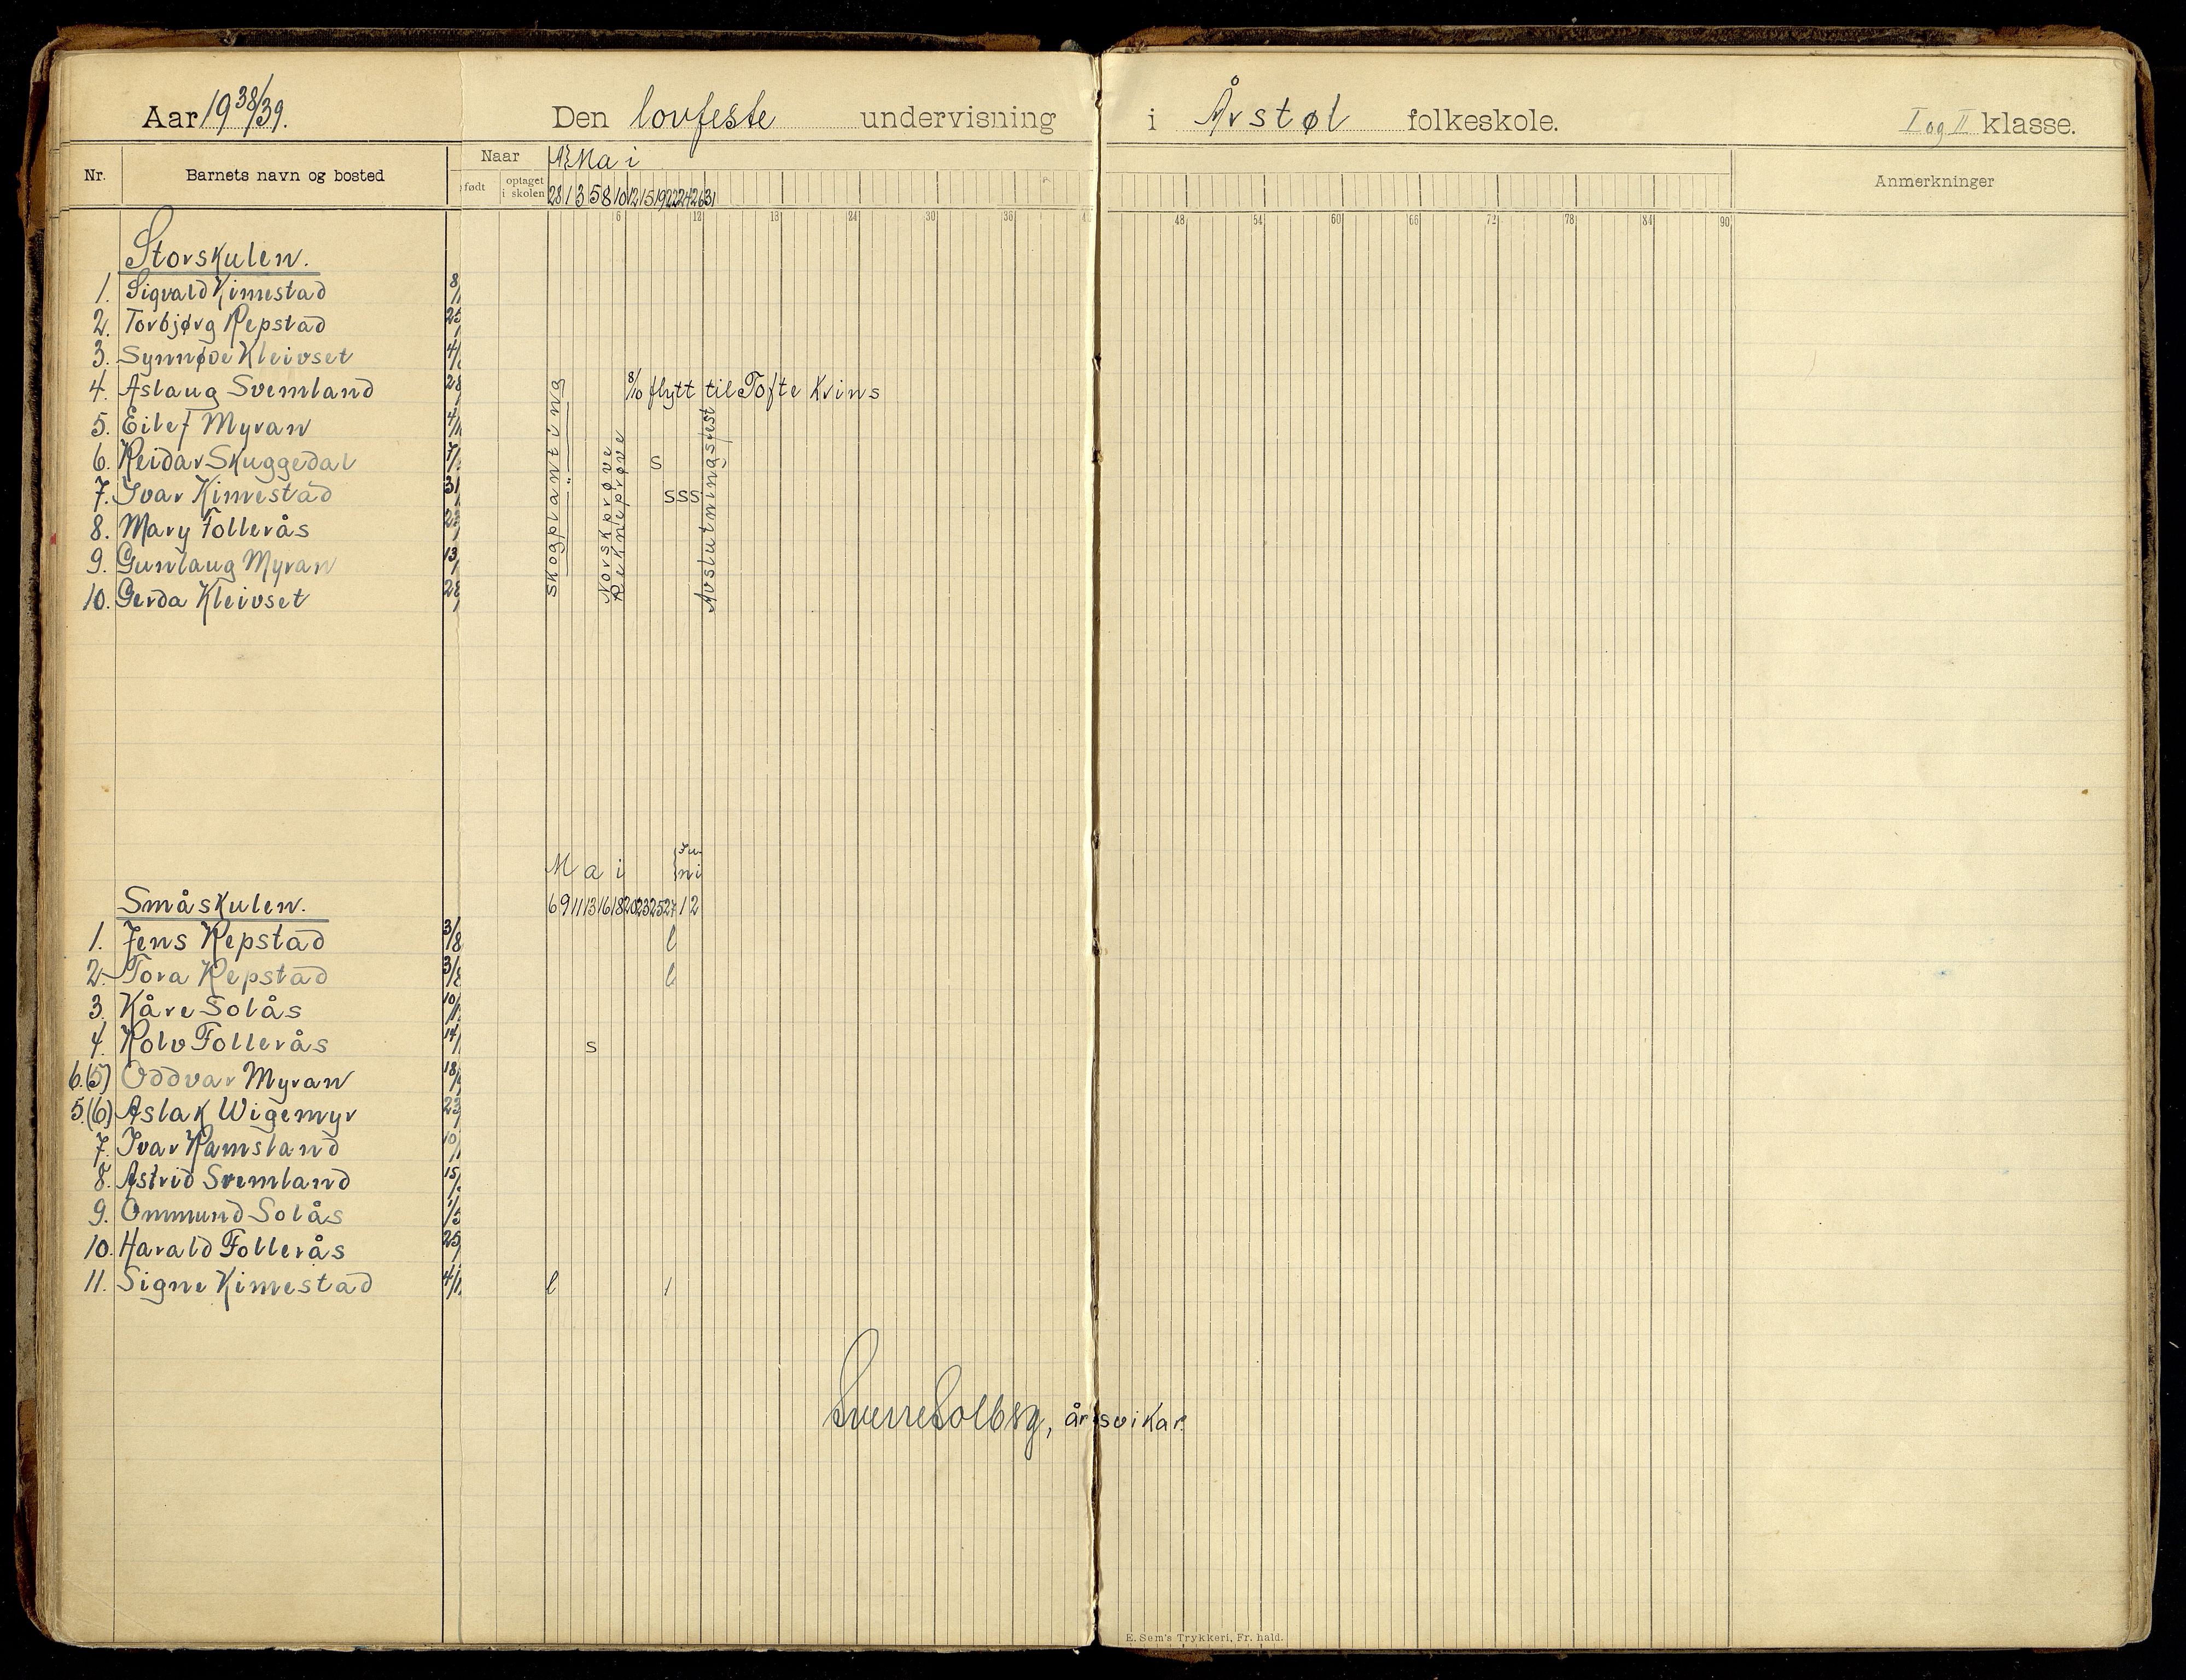 Aar 19 38/39. Den lovfeste undervisning i Årstøl folkeskole. I og II klasse.
Nr. Barnets navn og bosted Naar Mai Anmerkninger
født optaget i skolen 28 1 3 5 8 10 12 15 19 22 24 26 31
6 12 18 24 30 36 48 54 60 66 72 78 84 90
Storskulen.
1. Sigvald Kimestad 8/
2. Torbjørg Repstad 25
3. Synnøve Kleivset 4/
4. Aslaug Svemland 28 8/10 flytt til Tofte Kvins
5. Eilef Myran 4/
6. Reidar Skuggedal 7/ s
7. Ivar Kimestad 31 s s s
8. Mary Follerås
9. Gunlaug Myran 13
10. Gerda Kleivset 28
Skogplanting
Norskprøve
Rekneprøve
Avslutningsfest
Mai Juni
Småskulen. 6 9 11 13 16 18 20 23 25 27 1 2
1. Jens Repstad 3/8 l
2. Tora Repstad 3/8 l
3. Kåre Solås 10/
4. Rolv Follerås 14/ s
6.(5) Oddvar Myran 18/
5.(6) Aslak Wigemyr 23
7. Ivar Ramsland 10/
8. Astrid Svemland 15/
9. Ommund Solås 1/5
10. Harald Follerås 25
11. Signe Kimestad 4/1 l /
Sverre Solberg, årsvikar.
E. Sem's Trykkeri, Fr. hald.